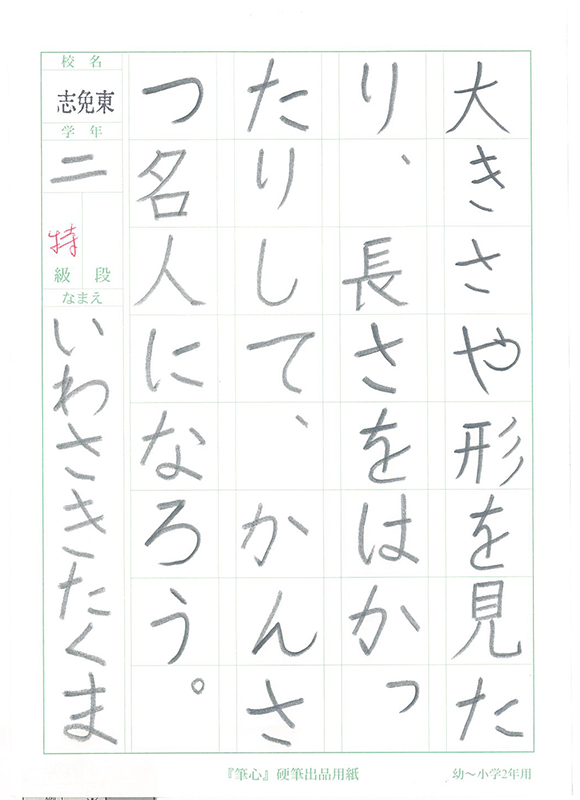 大きさや形を見た
り、長さをはかっ
たりして、かんさ
つ名人になろう。
校名
志免東
学年
二
特
級 段
なまえ
いわさきたくま
『筆心』硬筆出品用紙
幼～小学2年用